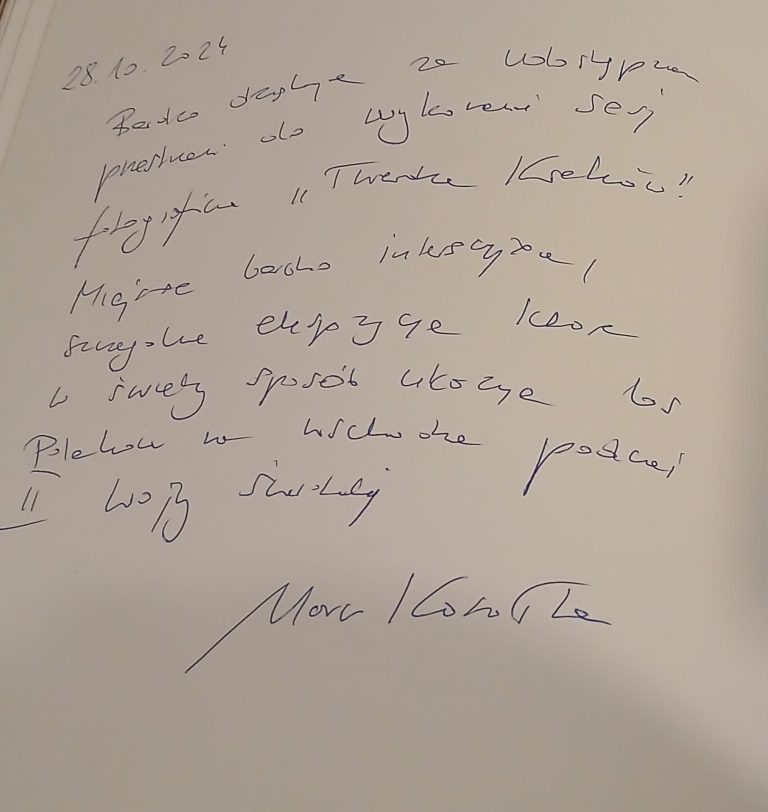 28.10.2024
Bardzo dziękuję za udostępnienie
przestrzeni do wykonania sesji
fotograficznej "Twierdza Kraków".
Miejsce bardzo interesujące,
szczególnie ekspozycje które
w świetny sposób ukazuje los
Polaków na wschodzie podczas
II wojny światowej